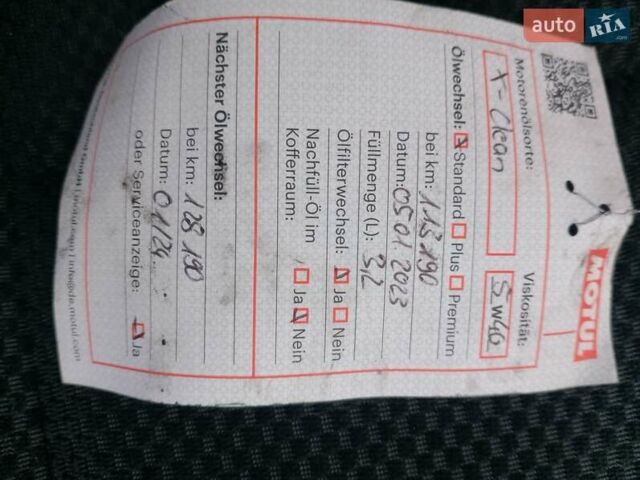 MOTUL
Motorenölsorte: Viskosität:
X-Clean 5W40
Ölwechsel: Standard Plus Premium
bei km: 113190
Datum: 05.01.2023
Füllmenge (L): 3,2
Ölfilterwechsel: Ja Nein
Nachfüll-Öl im
Kofferraum: Ja Nein
Nächster Ölwechsel:
bei km: 128190
Datum: 01/24
oder Serviceanzeige: Ja
GmbH | motul.com | info@de.motul.com
auto RIA
.com